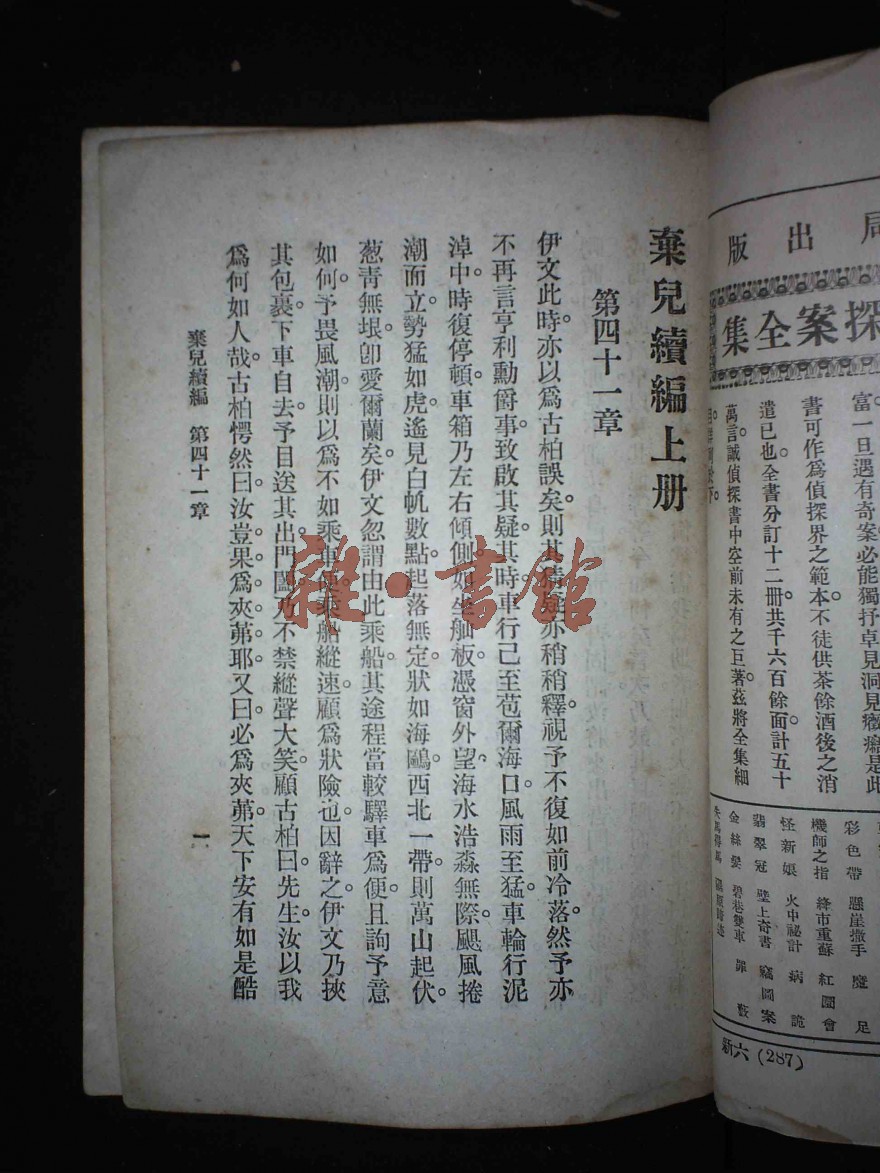 局出版
探案全集
富一旦遇有奇案必能獨抒卓見洞見癥癤是此
書可作爲偵探界之範本不徒供茶餘酒後之消
遣已也全書分訂十二冊共千六百餘面計五十
萬言誠偵探書中空前未有之巨著茲將全集細
彩色帶 懸崖撒手 魔足
機師之指 絳市重蘇 紅圜會
怪新娘 火中祕計 病詭
翡翠冠 壁上奇書 竊圖案
金絲髮 碧巷雙車 罪藪
新六(287)
棄兒續編上册
第四十一章
伊文此時。亦以爲古柏誤矣。則其猜疑亦稍稍釋。視予不復如前冷落。然予亦
不再言亨利勳爵事。致啟其疑。其時車行已至苞爾海口。風雨至猛。車輪行泥
淖中。時復停頓。車箱乃左右傾側。如坐舢板。憑窗外望。海水浩淼無際。颶風捲
潮而立。勢猛如虎。遙見白帆數點。起落無定。狀如海鷗。西北一帶。則萬山起伏。
葱青無垠。卽愛爾蘭矣。伊文忽謂由此乘船。其途程當較驛車爲便。且詢予意
如何。予畏風潮。則以爲不如乘車便。乘船縱速。顧爲狀險也。因辭之。伊文乃挾
其包裹。下車自去。予目送其出門闔。乃不禁縱聲大笑。顧古柏曰。先生。汝以我
爲何如人哉。古柏愕然曰。汝豈果爲夾茀耶。又曰。必爲夾茀。天下安有如是酷
棄兒續編 第四十一章
一
雜·書館